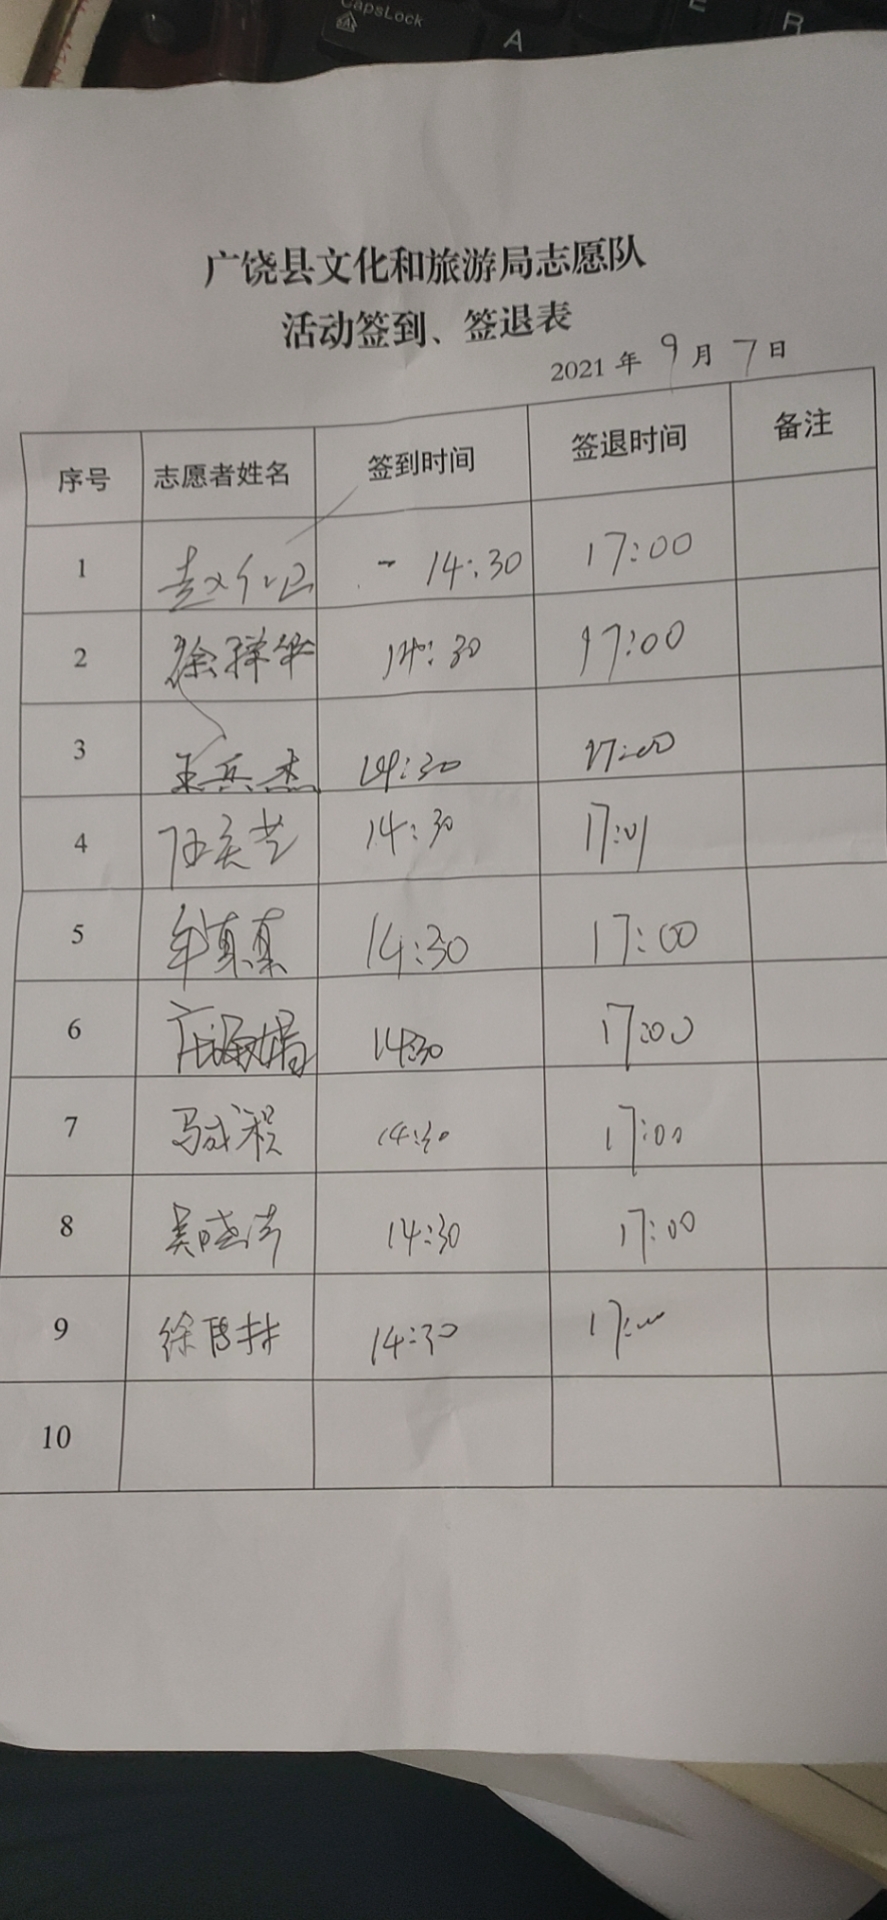 CapsLock
A
E
R
广饶县文化和旅游局志愿队
活动签到、签退表
2021 年 9 月 7 日
序号 志愿者姓名 签到时间 签退时间 备注
1 14:30 17:00
2 徐祥华 14:30 17:00
3 王兵杰 14:30 17:00
4 14:30 17:01
5 牟真真 14:30 17:00
6 14:30 17:00
7 14:30 17:00
8 14:30 17:00
9 14:30 17:00
10